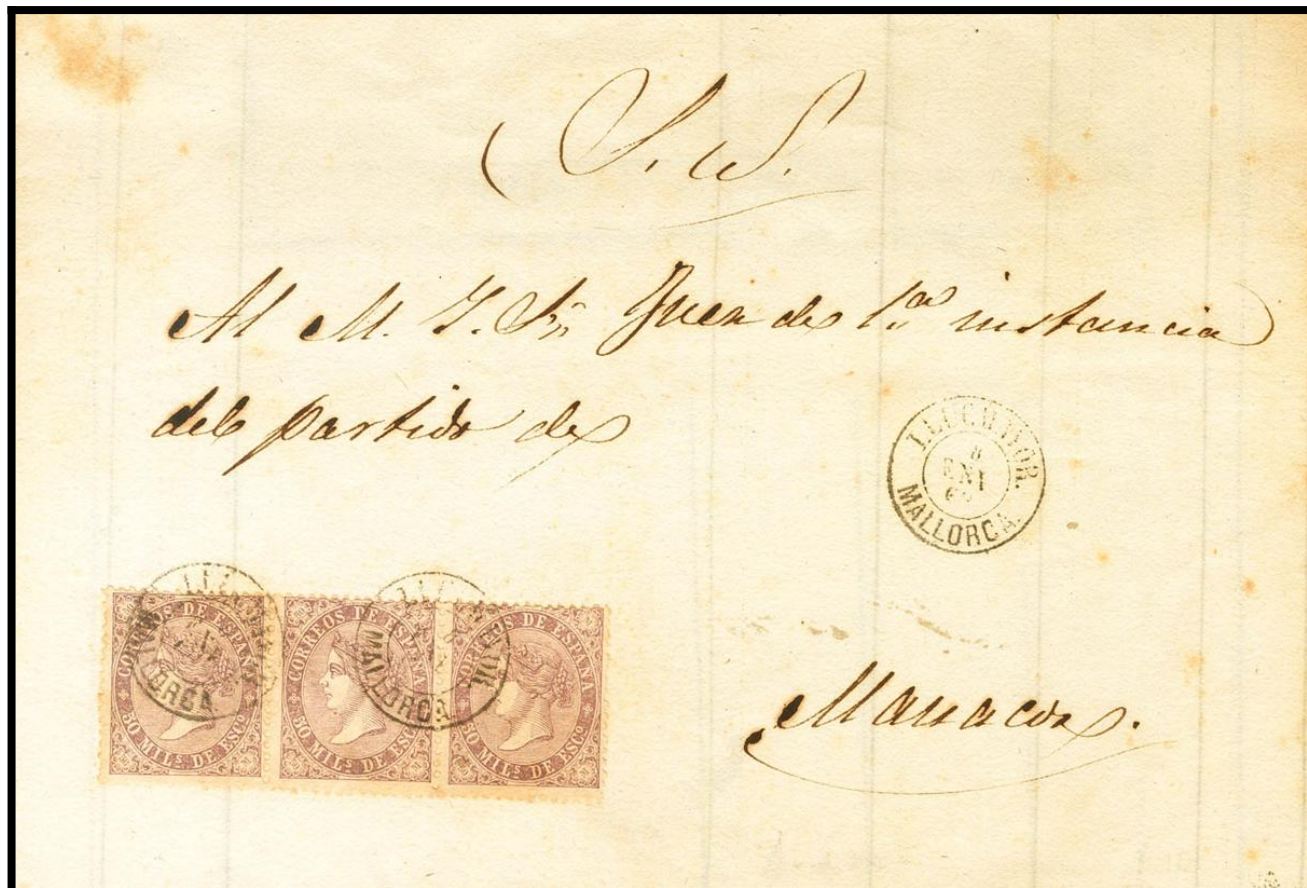 S. N.
Al M. Y. Sr. Juez de 1.ª instancia
del partido de
LLUCHMAYOR.
ENE
MALLORCA.
Manacor.
CORREOS DE ESPAÑA
50 MILS DE ESCO
MALLORCA
CORREOS DE ESPAÑA
50 MILS DE ESCO
MALLORCA
CORREOS DE ESPAÑA
50 MILS DE ESCO